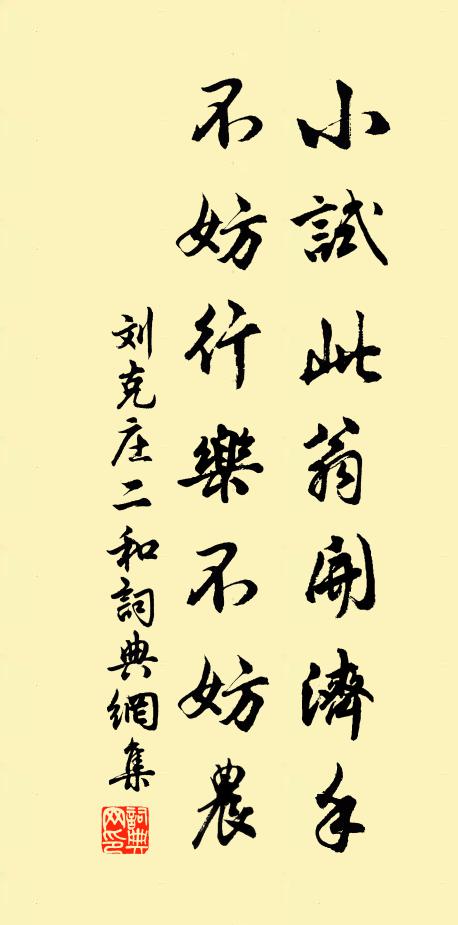 小試此翁開濟手
不妨行樂不妨農
刘克庄二和詞典網集
詞典
网印